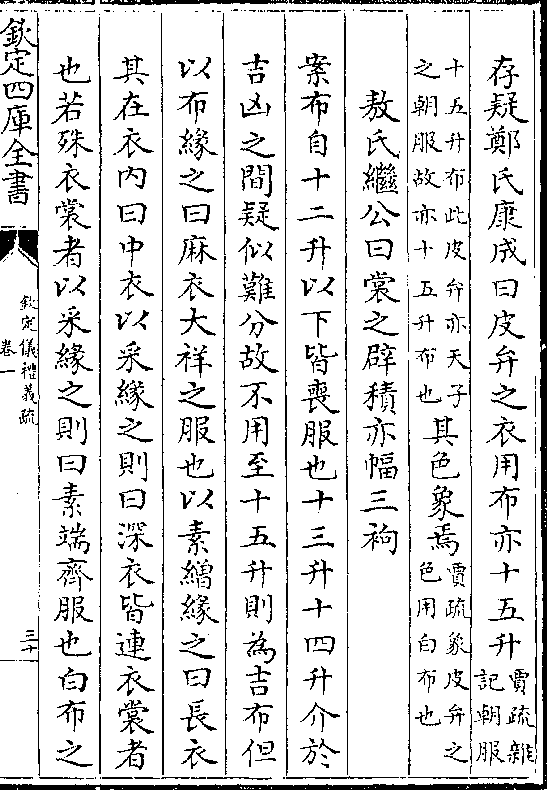 存疑鄭氏康成曰皮弁之衣用布亦十五升賈疏雜記朝服
十五升布此皮弁亦天子之朝服故亦十五升布也其色象焉賈疏象皮弁之色用白布也
敖氏繼公曰裳之辟積亦幅三袧
案布自十二升以下皆喪服也十三升十四升介於
吉凶之間疑似難分故不用至十五升則為吉布但
以布緣之曰麻衣大祥之服也以素繒緣之曰長衣
其在衣内曰中衣以采緣之則曰深衣皆連衣裳者
也若殊衣裳者以采緣之則曰素端齊服也白布之
欽定四庫全書
欽定儀禮義疏
卷一
三十